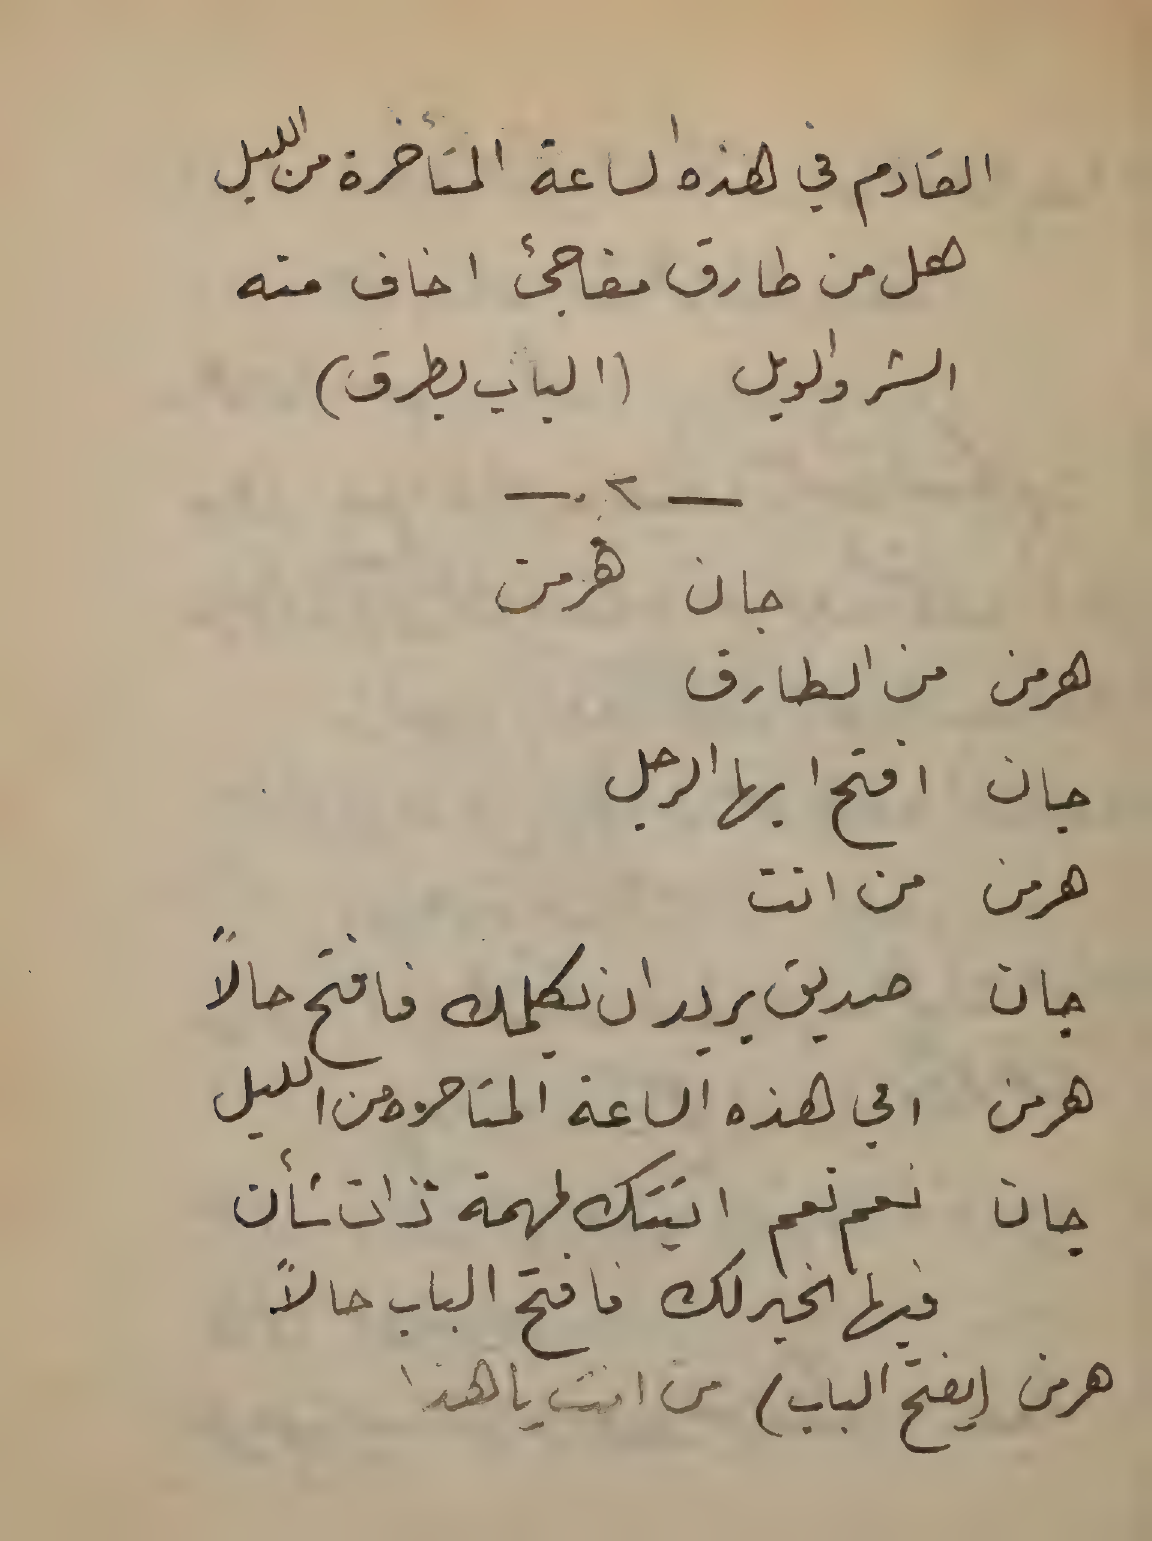 القادم في هذه الساعة المتأخرة من الليل
هل من طارق مفاجئ اخاف منه
الشر والويل (الباب يطرق)
— ٢ —
جان هرمن
هرمن من الطارق
جان افتح ايها الرجل
هرمن من انت
جان صديق يريد ان يكلمك فافتح حالاً
هرمن افي هذه الساعة المتاخره من الليل
جان نعم نعم اتيتك لمهمة ذات شأن
فيها الخير لك فافتح الباب حالاً
هرمن (يفتح الباب) من انت يا هذا